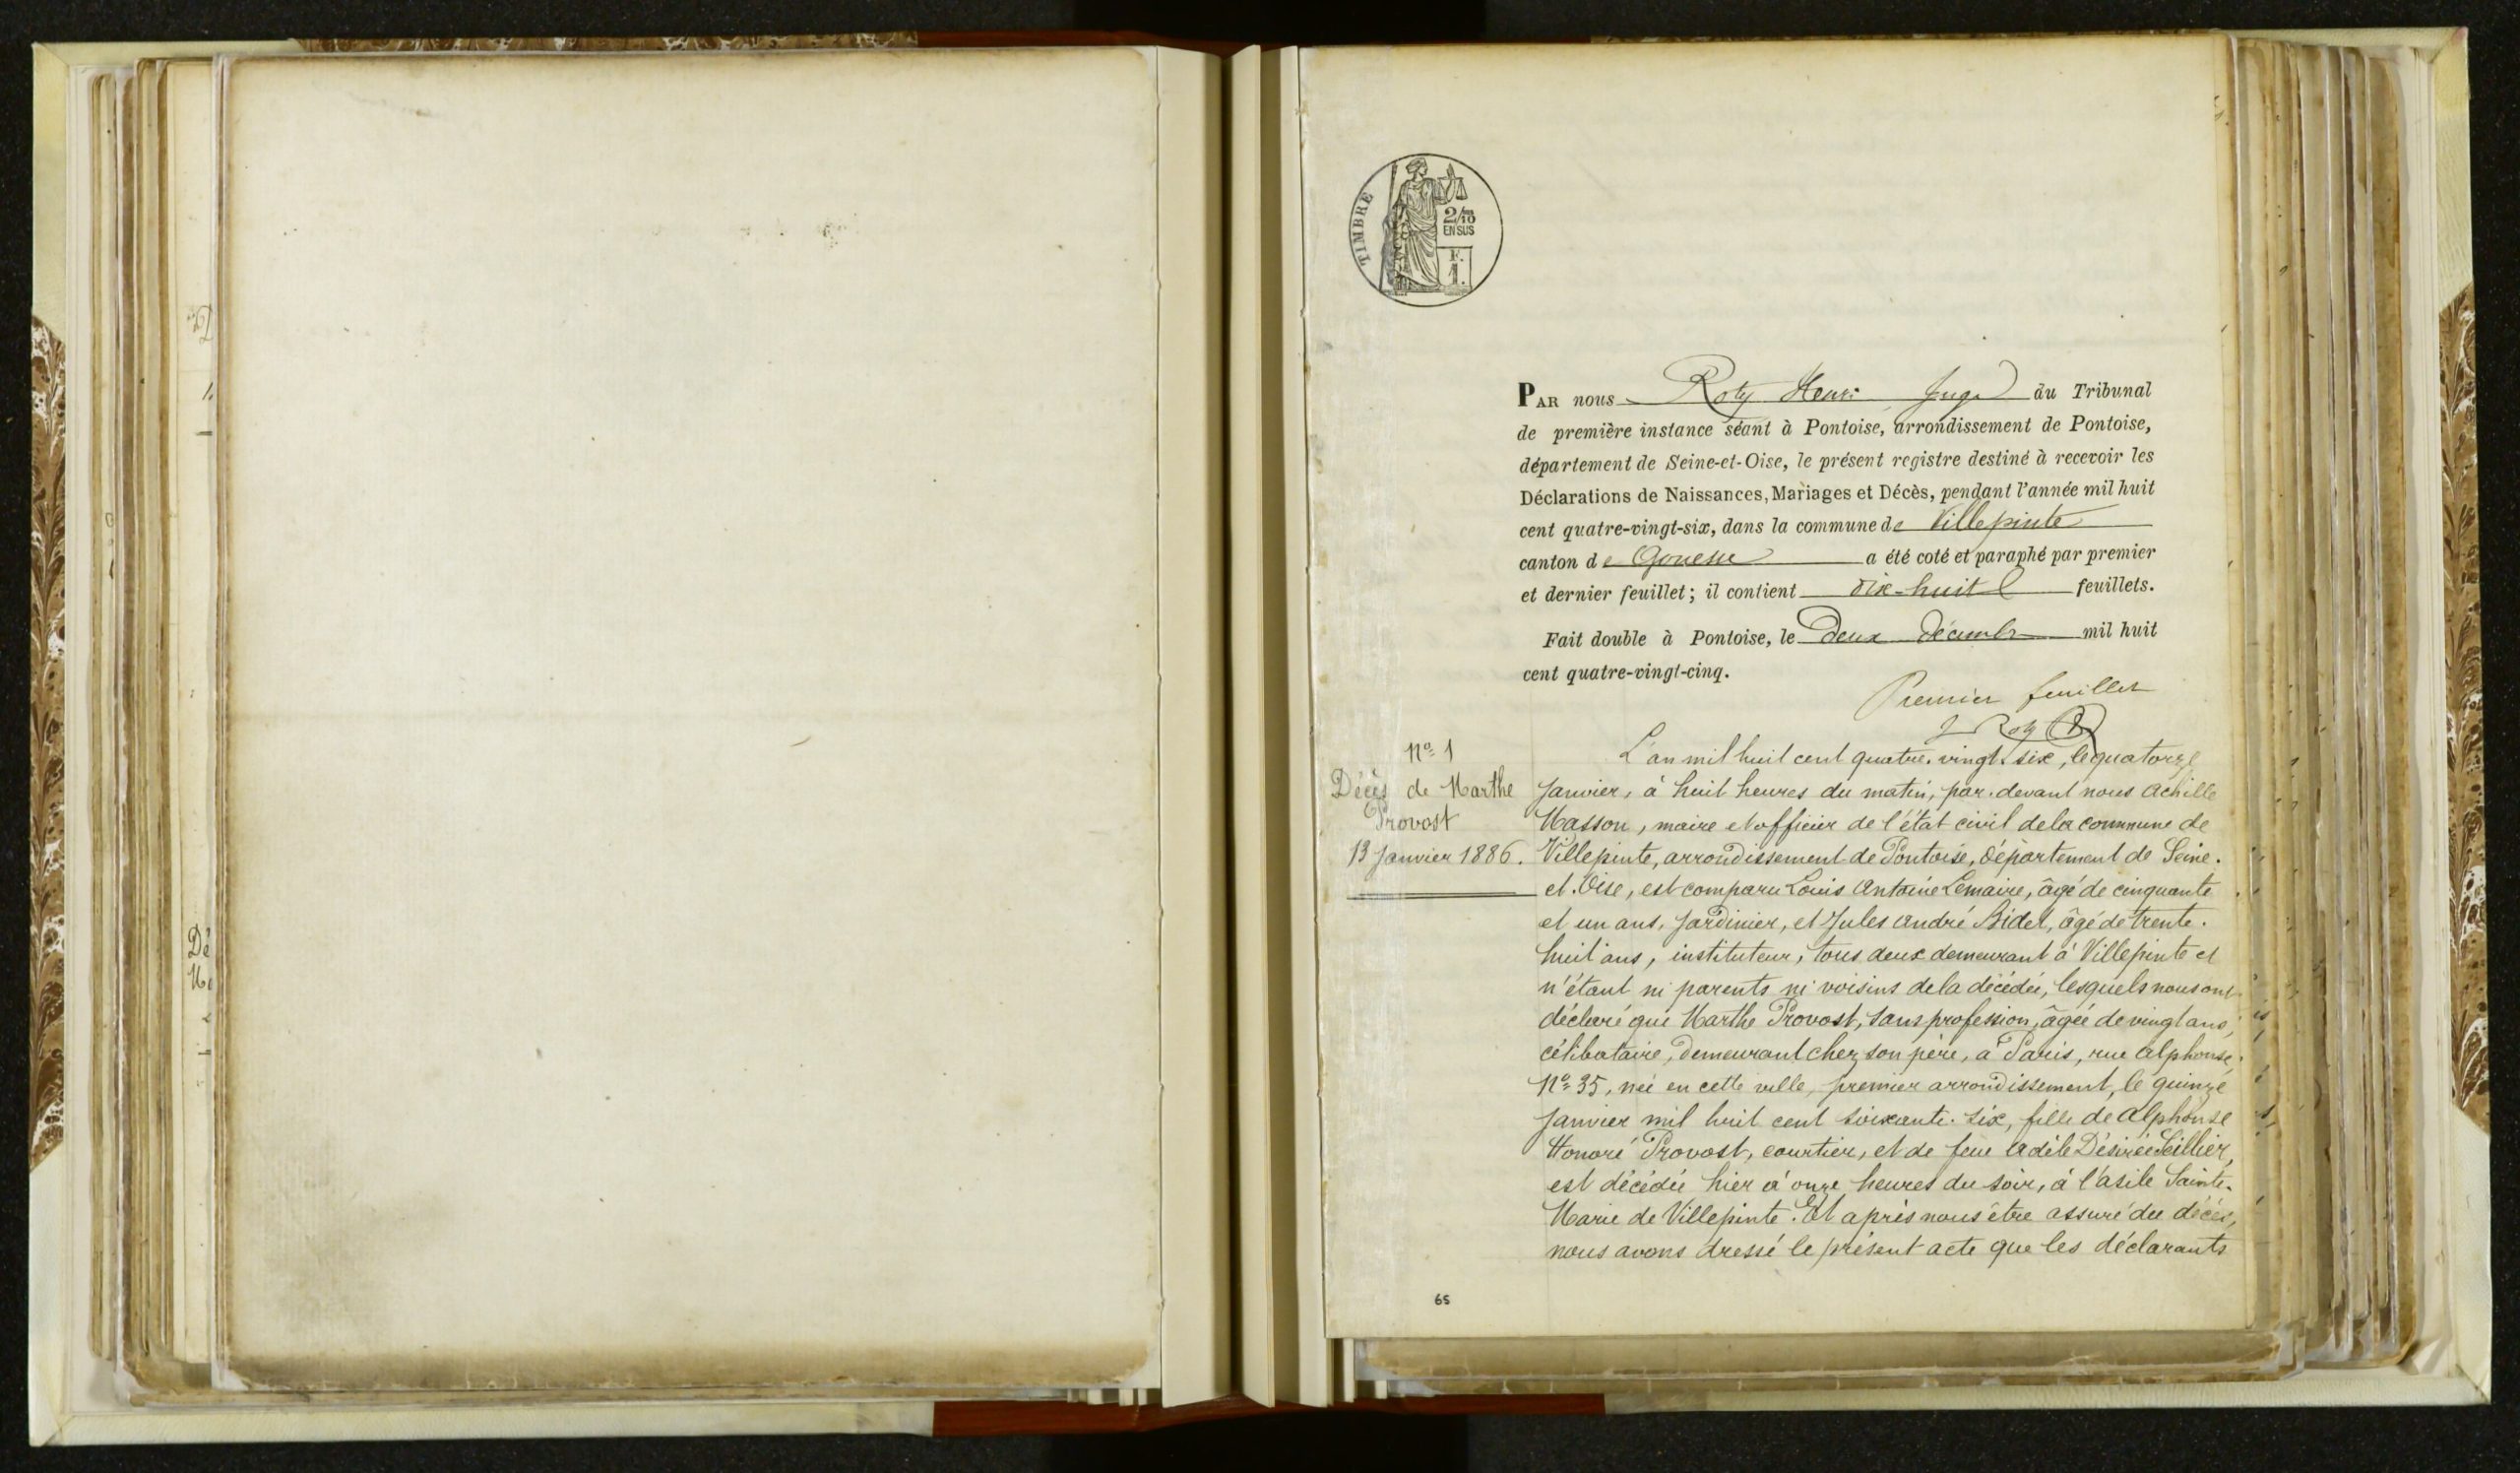 TIMBRE
2/10
EN SUS
F.
1.
PAR nous Roty Henri Juge au Tribunal
de première instance séant à Pontoise, arrondissement de Pontoise,
département de Seine-et-Oise, le présent registre destiné à recevoir les
Déclarations de Naissances, Mariages et Décès, pendant l'année mil huit
cent quatre-vingt-six, dans la commune de Villepinte
canton de Gonesse a été coté et paraphé par premier
et dernier feuillet; il contient dix-huit feuillets.
Fait double à Pontoise, le Deux Décembre mil huit
cent quatre-vingt-cinq.
Premier feuillet
Roty
No 1
Décès de Marthe
Provost
13 Janvier 1886.
L'an mil huit cent quatre-vingt-six, le quatorze
Janvier, à huit heures du matin, par-devant nous Achille
Masson, maire et officier de l'état civil de la commune de
Villepinte, arrondissement de Pontoise, Département de Seine-
et-Oise, est comparu Louis Antoine Lemaire, âgé de cinquante
et un ans, Jardinier, et Jules André Bidet, âgé de trente-
huit ans, instituteur, tous deux demeurant à Villepinte et
n'étant ni parents ni voisins de la décédée, lesquels nous ont
déclaré que Marthe Provost, sans profession, âgée de vingt ans,
célibataire, demeurant chez son père, à Paris, rue Alphonse,
No 35, née en cette ville, premier arrondissement, le quinze
Janvier mil huit cent soixante-six, fille de Alphonse
Honoré Provost, courtier, et de feue Adèle Désirée Seillier,
est décédée hier à onze heures du soir, à l'asile Sainte-
Marie de Villepinte. Et après nous être assuré du décès,
nous avons dressé le présent acte que les déclarants
65